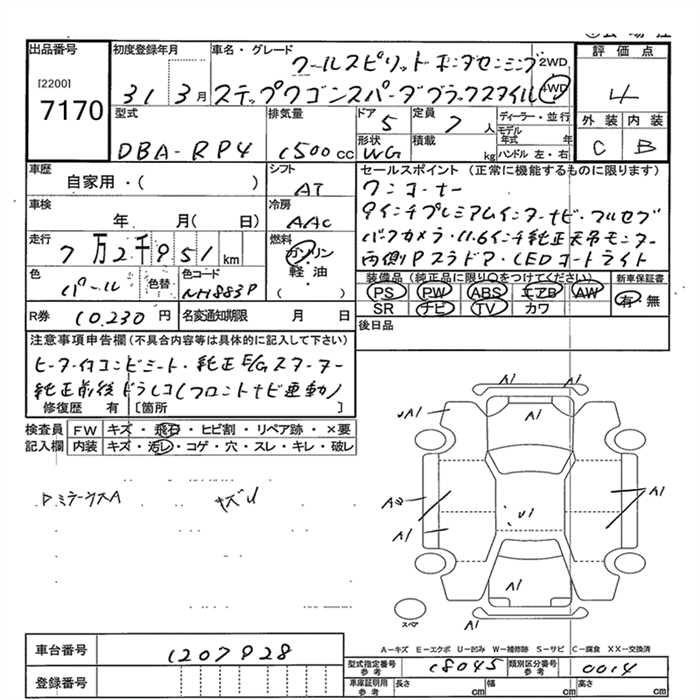 出品番号
[2200]
7170
初度登録年月
31 3月
車名・グレード
クールスピリット ホンダセンシング
ステップワゴンスパーダブラックスタイル
2WD
4WD
評価点
4
外装 内装
C B
型式
DBA-RP4
排気量
1500 cc
ドア
5
定員
7 人
形状
WG
積載
kg
ディーラー・並行
モデル年式 年
ハンドル 左・右
車歴
自家用・( )
シフト
AT
車検
年 月( 日)
冷房
AAC
走行
7万2千951 km
燃料
ガソリン
軽・油
( )
色
パール
色替
色コード
NH883P
R券
10.230 円
名変通知期限 月 日
セールスポイント（正常に機能するものに限ります）
ワンオーナー
9インチプレミアムインターナビ・フルセグ
バックカメラ・11.6インチ純正天吊モニター
両側Pスラドア・LEDオートライト
装備品（純正品に限り○をつけてください）
PS PW ABS エアB AW
SR ナビ TV カワ
新車保証書
有・無
後日品
注意事項申告欄（不具合内容等は具体的に記入して下さい）
ヒーター付コンビシート・純正E/Gスターター
純正前後ドラレコ(フロントナビ連動)
修復歴 有 [箇所 ]
検査員記入欄
FW キズ・飛石・ヒビ割・リペア跡・×要
内装 キズ・汚レ・コゲ・穴・スレ・キレ・破レ
キズU
A1
A1
A1
UA1
A2
A1
U1
A1
A1
A1
スペア
A-キズ E-エクボ U-凹み W-補修跡 S-サビ C-腐食 XX-交換済
車台番号
1207928
登録番号
型式指定番号
参考
18045
類別区分番号
参考
0014
車庫証明用
参考
長さ cm
幅 cm
高さ cm